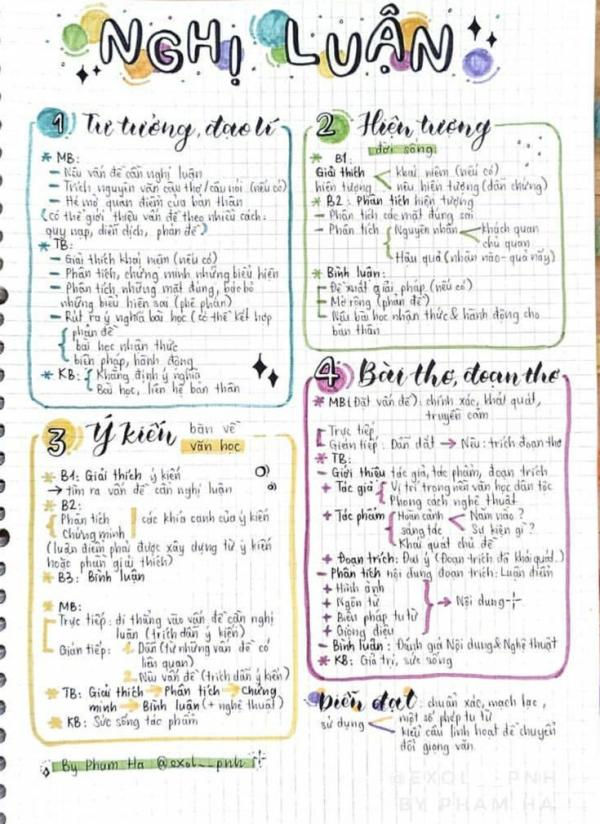 NGHỊ LUẬN
1 Tư tưởng, đạo lí
* MB:
- Nêu vấn đề cần nghị luận
- Trích nguyên văn câu thơ/câu nói (nếu có)
- Hé mở quan điểm của bản thân
(có thể giới thiệu vấn đề theo nhiều cách:
quy nạp, diễn dịch, phản đề)
* TB:
- Giải thích khái niệm (nếu có)
- Phân tích, chứng minh những biểu hiện
- Phân tích những mặt đúng, bác bỏ
những biểu hiện sai (phê phán)
- Rút ra ý nghĩa bài học (có thể kết hợp
phản đề
bài học nhận thức
biện pháp, hành động
* KB: Khẳng định ý nghĩa
Bài học, liên hệ bản thân
2 Hiện tượng
đời sống
* B1:
Giải thích khái niệm (nếu có)
hiện tượng nêu hiện tượng (dẫn chứng)
* B2: Phân tích hiện tượng
- Phân tích các mặt đúng sai
- Phân tích Nguyên nhân khách quan
chủ quan
Hậu quả (nhân nào - quả nấy)
* Bình luận:
Đề xuất giải pháp (nếu có)
Mở rộng (phản đề)
Nêu bài học nhận thức & hành động cho
bản thân
3 Ý kiến bàn về
văn học
* B1: Giải thích ý kiến
→ tìm ra vấn đề cần nghị luận
* B2:
Phân tích
Chứng minh các khía cạnh của ý kiến
(luận điểm phải được xây dựng từ ý kiến
hoặc phần giải thích)
* B3: Bình luận
* MB:
Trực tiếp: đi thẳng vào vấn đề cần nghị
luận (trích dẫn ý kiến)
Gián tiếp: 1. Dẫn (từ những vấn đề có
liên quan)
2. Nêu vấn đề (trích dẫn ý kiến)
* TB: Giải thích → Phân tích → Chứng
minh → Bình luận (+ nghệ thuật)
* KB: Sức sống tác phẩm
4 Bài thơ, đoạn thơ
* MB (Đặt vấn đề): chính xác, khái quát,
truyền cảm
Trực tiếp
Gián tiếp: Dẫn dắt → Nêu: trích đoạn thơ
* TB:
- Giới thiệu tác giả, tác phẩm, đoạn trích
+ Tác giả Vị trí trong nền văn học dân tộc
Phong cách nghệ thuật
+ Tác phẩm Hoàn cảnh Năm nào?
sáng tác Sự kiện gì?
Khái quát chủ đề
+ Đoạn trích: Đại ý (Đoạn trích đã khái quát..)
- Phân tích nội dung đoạn trích: Luận điểm
+ Hình ảnh
+ Ngôn từ
+ Biện pháp tu từ → Nội dung
+ Giọng điệu
- Bình luận: Đánh giá Nội dung & Nghệ thuật
* KB: Giá trị, sức sống
Diễn đạt: chuẩn xác, mạch lạc,
sử dụng một số phép tu từ
kiểu câu linh hoạt để chuyển
đổi giọng văn.
By Pham Ha @exol__pnh
@EXOL__PNH
BY PHAM HA